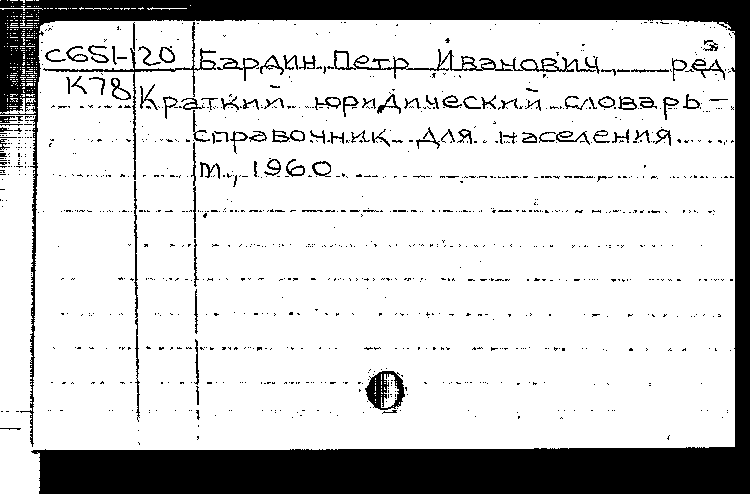 С651-120 Бардин, Петр Иванович, ред.
К78 Краткий юридический словарь-
справочник для населения.
М., 1960.